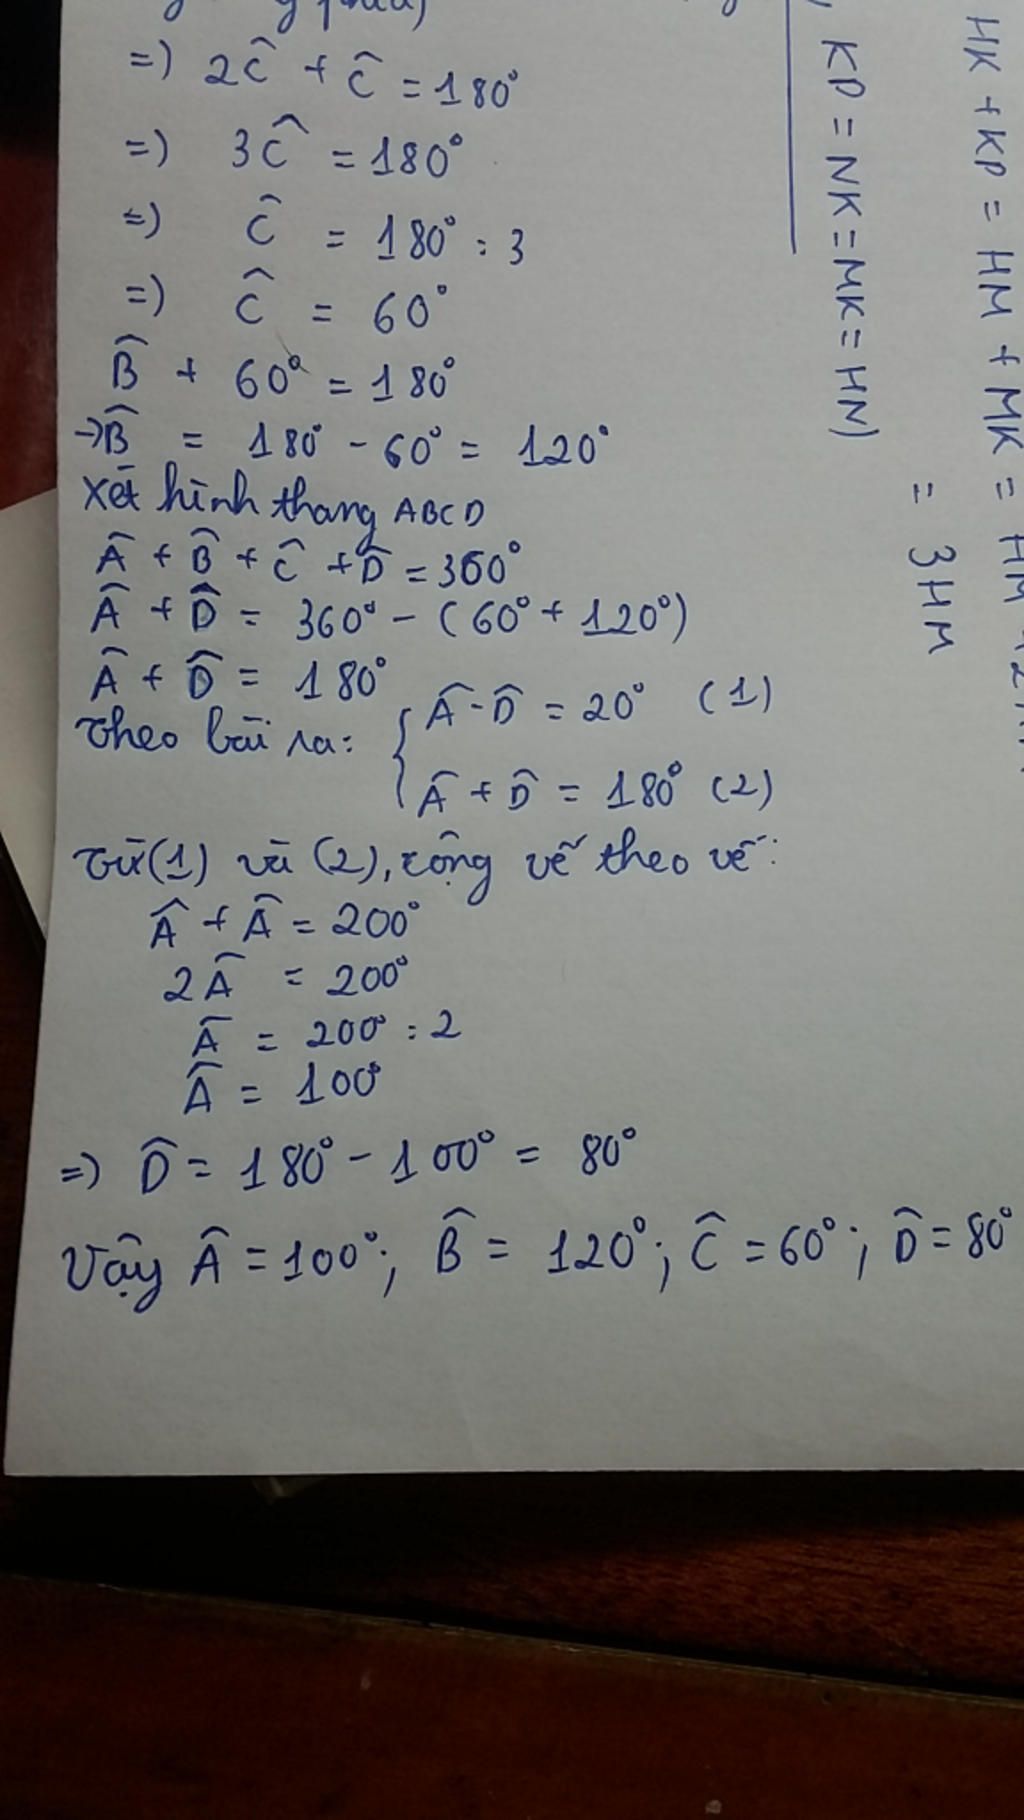 =) 2Ĉ + Ĉ = 180°
=) 3Ĉ = 180°
=) Ĉ = 180° : 3
=) Ĉ = 60°
B̂ + 60° = 180°
→ B̂ = 180° - 60° = 120°
Xét hình thang ABCD
Â + B̂ + Ĉ + D̂ = 360°
Â + D̂ = 360° - (60° + 120°)
Â + D̂ = 180°
Theo bài ra: { Â - D̂ = 20° (1)
Â + D̂ = 180° (2)
Từ (1) và (2), cộng vế theo vế:
Â + Â = 200°
2Â = 200°
Â = 200° : 2
Â = 100°
=) D̂ = 180° - 100° = 80°
Vậy Â = 100°; B̂ = 120°; Ĉ = 60°; D̂ = 80°
HK + KP = HM + MK = HM
KP = NK = MK = HM)
= 3HM